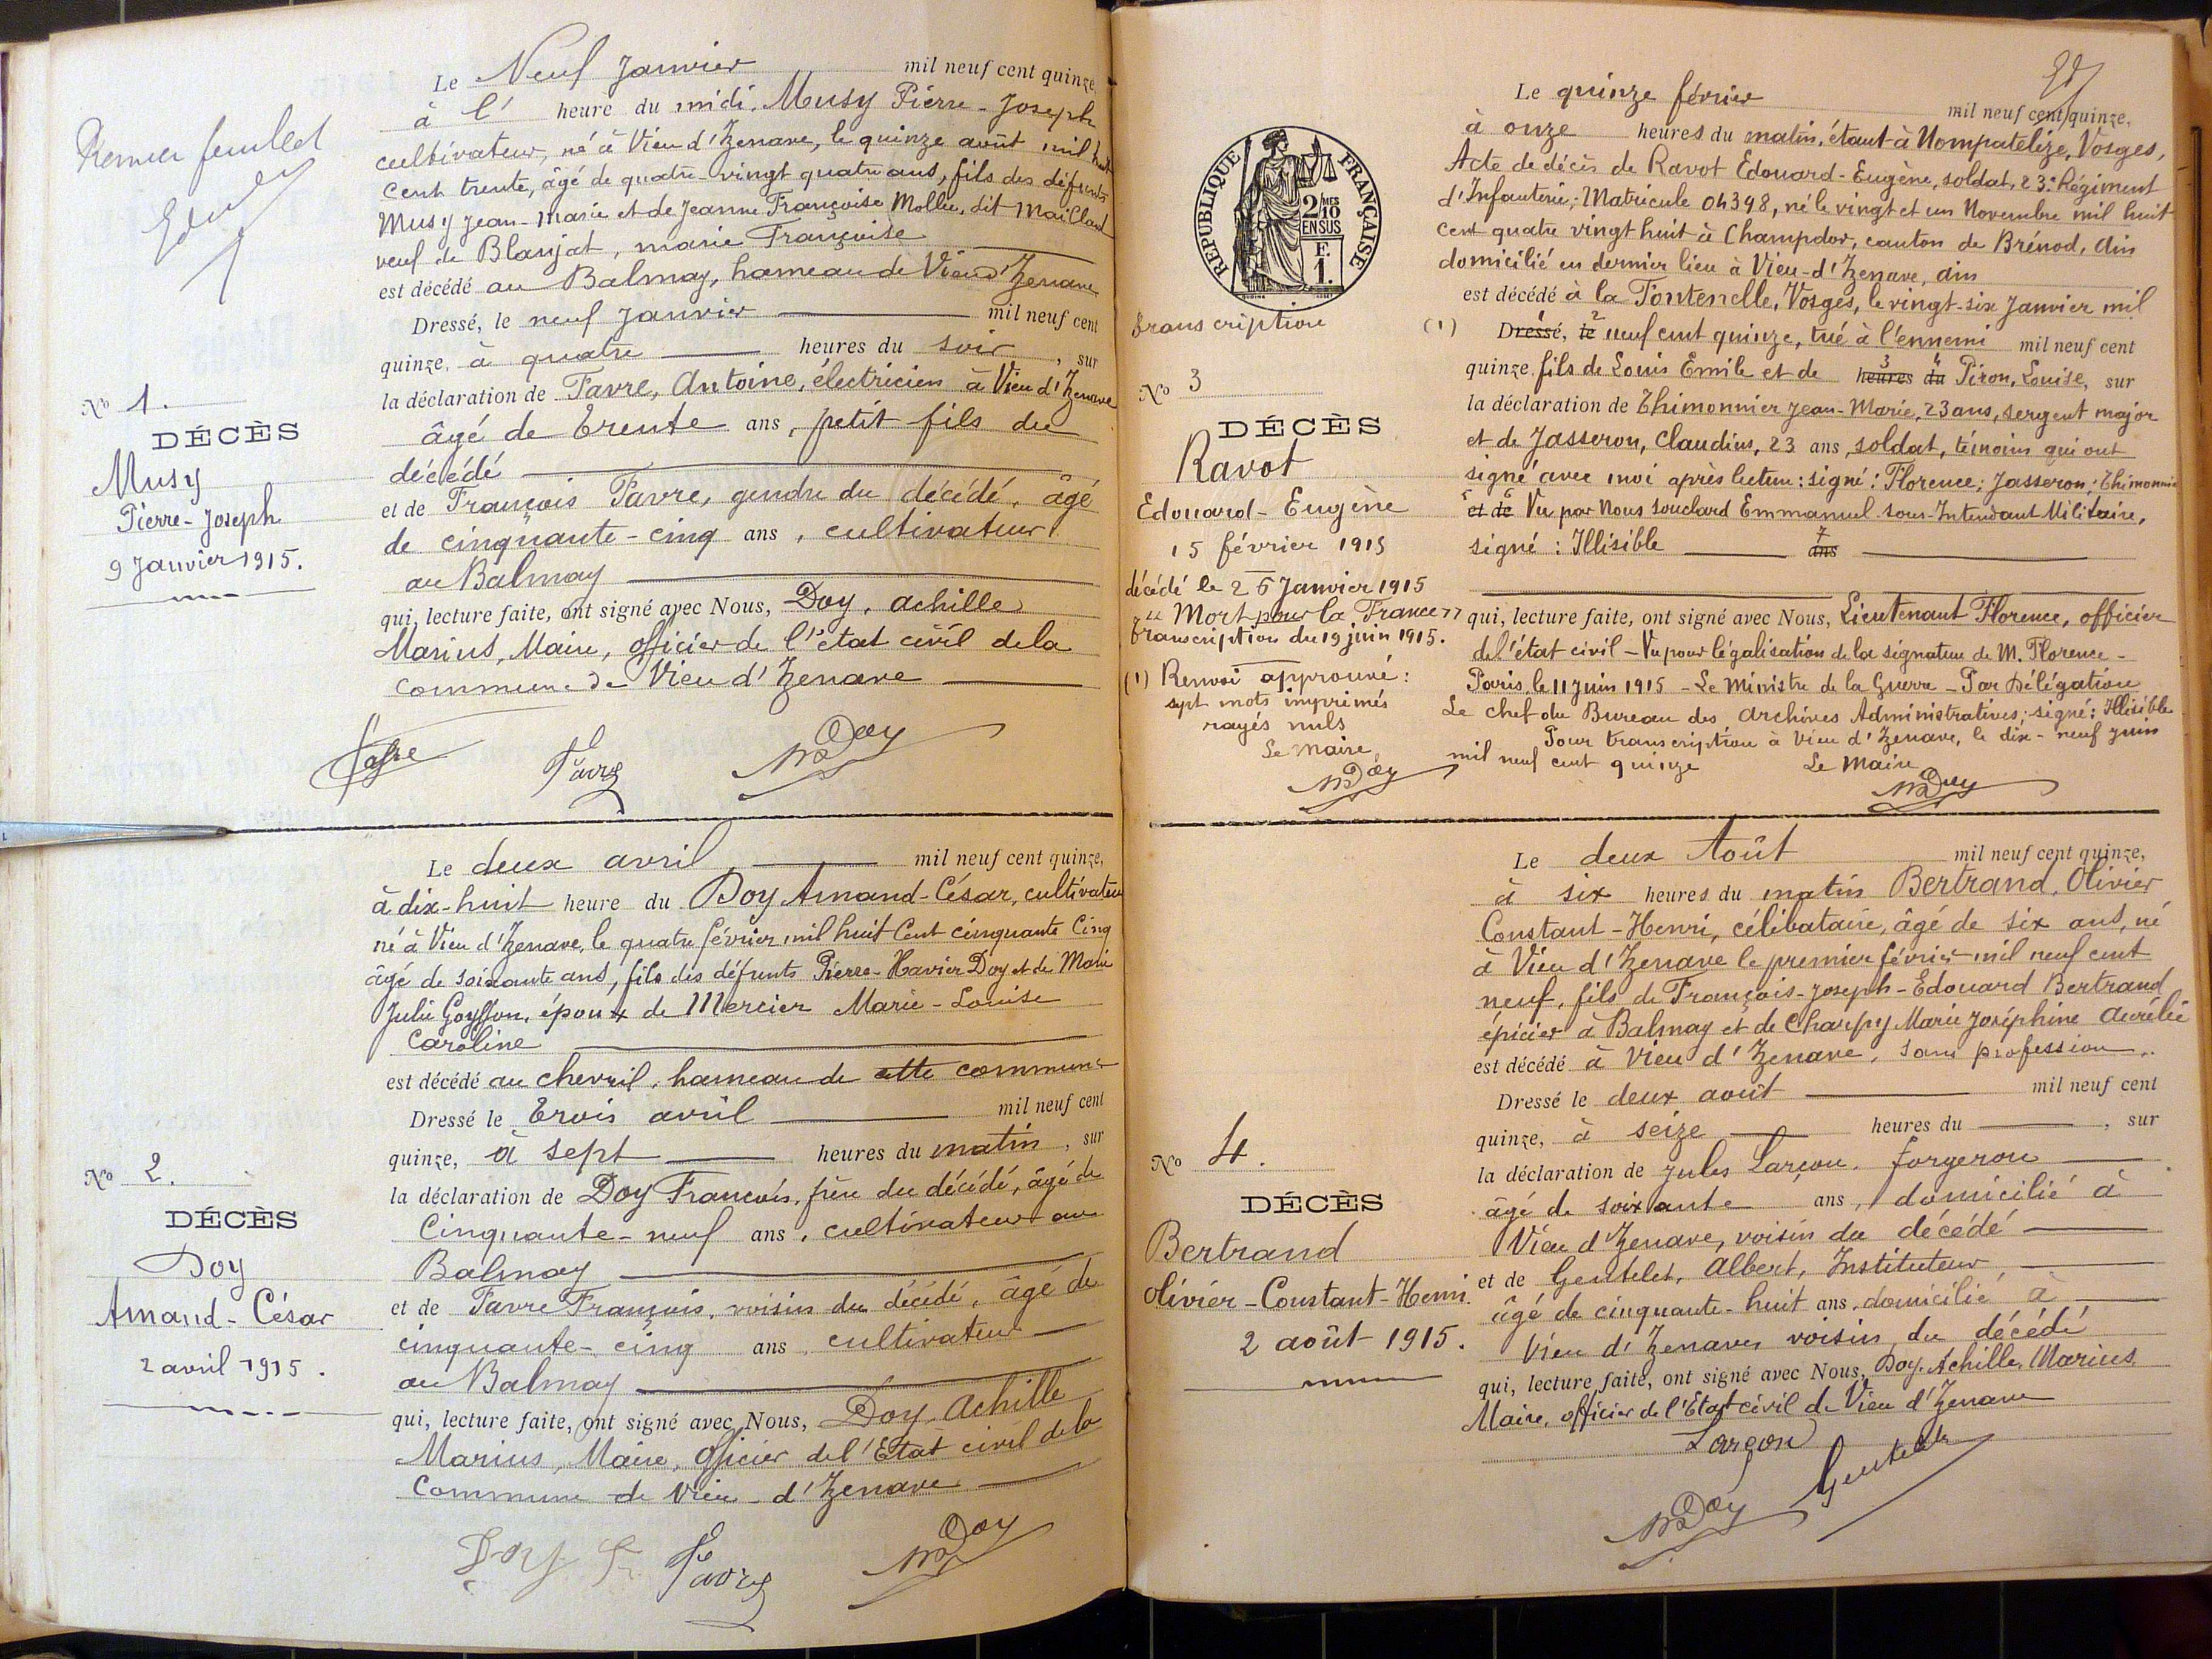 Premier feuillet
Le Neuf Janvier mil neuf cent quinze,
à l' heure du midi, Musy Pierre-Joseph
cultivateur, né à Vieu d'Izenave, le quinze août mil huit
cent trente, âgé de quatre-vingt quatre ans, fils des défunts
Musy Jean-Marie et de Jeanne Françoise Mollie, dit Maillant
veuf de Blanjat, marie Françoise
est décédé au Balmay, hameau de Vieu d'Izenave
Dressé, le neuf Janvier mil neuf cent
quinze, à quatre heures du soir, sur
la déclaration de Favre, Antoine, électricien à Vieu d'Izenave
âgé de trente ans, petit fils du
décédé
et de François Favre, gendre du décédé, âgé
de cinquante-cinq ans, cultivateur
au Balmay
qui, lecture faite, ont signé avec Nous, Doy, Achille
Marius, Maire, officier de l'état civil de la
commune de Vieu d'Izenave
Favre Favre M Doy
No 1.
DÉCÈS
Musy
Pierre-Joseph
9 Janvier 1915.
Le deux avril mil neuf cent quinze,
à dix-huit heure du Doy Amand-César, cultivateur
né à Vieu d'Izenave, le quatre février mil huit Cent cinquante Cinq
âgé de soixante ans, fils des défunts Pierre-Xavier Doy et de Marie
Julie Goyffon, époux de Mercier Marie-Louise
Caroline
est décédé au chevril, hameau de cette commune
Dressé le trois avril mil neuf cent
quinze, à sept heures du matin, sur
la déclaration de Doy François, frère du décédé, âgé de
Cinquante-neuf ans, cultivateur au
Balmay
et de Favre François, voisin du décédé, âgé de
cinquante-cinq ans, cultivateur
au Balmay
qui, lecture faite, ont signé avec Nous, Doy, Achille
Marius, Maire, Officier de l'Etat civil de la
Commune de Vieu-d'Izenave
Doy F. Favre M Doy
No 2.
DÉCÈS
Doy
Amand-César
2 avril 1915.
RÉPUBLIQUE FRANÇAISE
2/10MES
EN SUS
F.
1.
transcription
No 3
DÉCÈS
Ravot
Edouard-Eugène
15 février 1915
décédé le 26 Janvier 1915
"Mort pour la France"
transcription du 19 juin 1915.
(1) Renvoi approuvé :
sept mots imprimés
rayés nuls
Le Maire
M Doy
Le quinze février mil neuf cent quinze,
à onze heures du matin, étant à Nompatelize, Vosges,
Acte de décès de Ravot Edouard-Eugène, soldat, 23e Régiment
d'Infanterie; Matricule 04398, né le vingt et un Novembre mil huit
cent quatre vingt huit à Champdor, canton de Brénod, Ain
domicilié en dernier lieu à Vieu-d'Izenave, ain
est décédé à la Fontenelle, Vosges, le vingt-six Janvier mil
(1) Dressé, le neuf cent quinze, tué à l'ennemi mil neuf cent
quinze, fils de Louis Emile et de heures du Piron, Louise, sur
la déclaration de Thimonnier Jean-Marie, 23 ans, sergent major
et de Jasseron, Claudius, 23 ans, soldat, témoins qui ont
signé avec moi après lecture : signé : Florence; Jasseron; Thimonnier
et de Vu par Nous Souclard Emmanuel Sous-Intendant Militaire,
signé : Illisible ans
qui, lecture faite, ont signé avec Nous, Lieutenant Florence, officier
de l'état civil - Vu pour légalisation de la signature de M. Florence -
Paris, le 11 Juin 1915 - Le Ministre de la Guerre - Par Délégation
Le chef du Bureau des Archives Administratives; signé : Illisible
Pour transcription à Vieu d'Izenave, le dix-neuf juin
mil neuf cent quinze Le Maire
M Doy
Le deux Août mil neuf cent quinze,
à six heures du matin Bertrand, Olivier
Constant-Henri, célibataire, âgé de six ans, né
à Vieu d'Izenave le premier février mil neuf cent
neuf, fils de François-Joseph-Edouard Bertrand
épicier à Balmay et de Charpy Marie Joséphine Aurélie
est décédé à Vieu d'Izenave, sans profession.
Dressé le deux août mil neuf cent
quinze, à seize heures du , sur
la déclaration de Jules Larçon, forgeron
âgé de soixante ans, domicilié à
Vieu d'Izenave, voisin du décédé
et de Gentelet, Albert, Instituteur
âgé de cinquante-huit ans, domicilié à
Vieu d'Izenave, voisin du décédé
qui, lecture faite, ont signé avec Nous, Doy, Achille, Marius
Maire, officier de l'Etat civil de Vieu d'Izenave
Larçon
M Doy Gentelet
No 4.
DÉCÈS
Bertrand
Olivier-Constant-Henri.
2 août 1915.